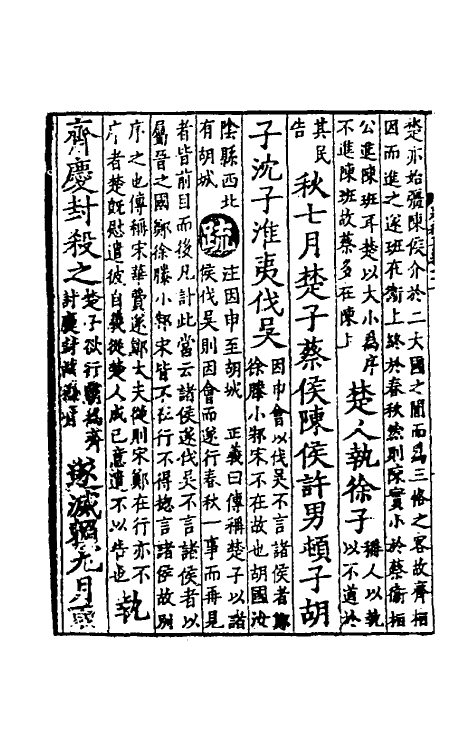 楚亦始彊陳侯介於二大國之間而爲三恪之客故齊桓
因而進之遂班在衞上終於春秋然則陳實小於蔡衞桓
公進陳班耳楚以大小爲序
不進陳班故蔡多在陳上
楚人執徐子
稱人以執
以不道於
其民
告
秋七月楚子蔡侯陳侯許男頓子胡
子沈子淮夷伐吳
因申會以伐吳不言諸侯者鄭
徐滕小邾宋不在故也胡國汝
陰縣西北
有胡城
疏
注因申至胡城 正義曰傳稱楚子以諸
侯伐吳則因會而遂行春秋一事而再見
者皆前目而後凡計此當云諸侯遂伐吳不言諸侯者以
屬晉之國鄭徐滕小邾宋皆不在行不得揔言諸侯故別
序之也傳稱宋華費遂鄭大夫從則宋鄭在行亦不
序者楚旣慰遣彼自義從楚人成已意遣不以告也
執
齊慶封殺之
楚子欲行霸爲齊
討慶封故稱齊
遂滅賴九月取